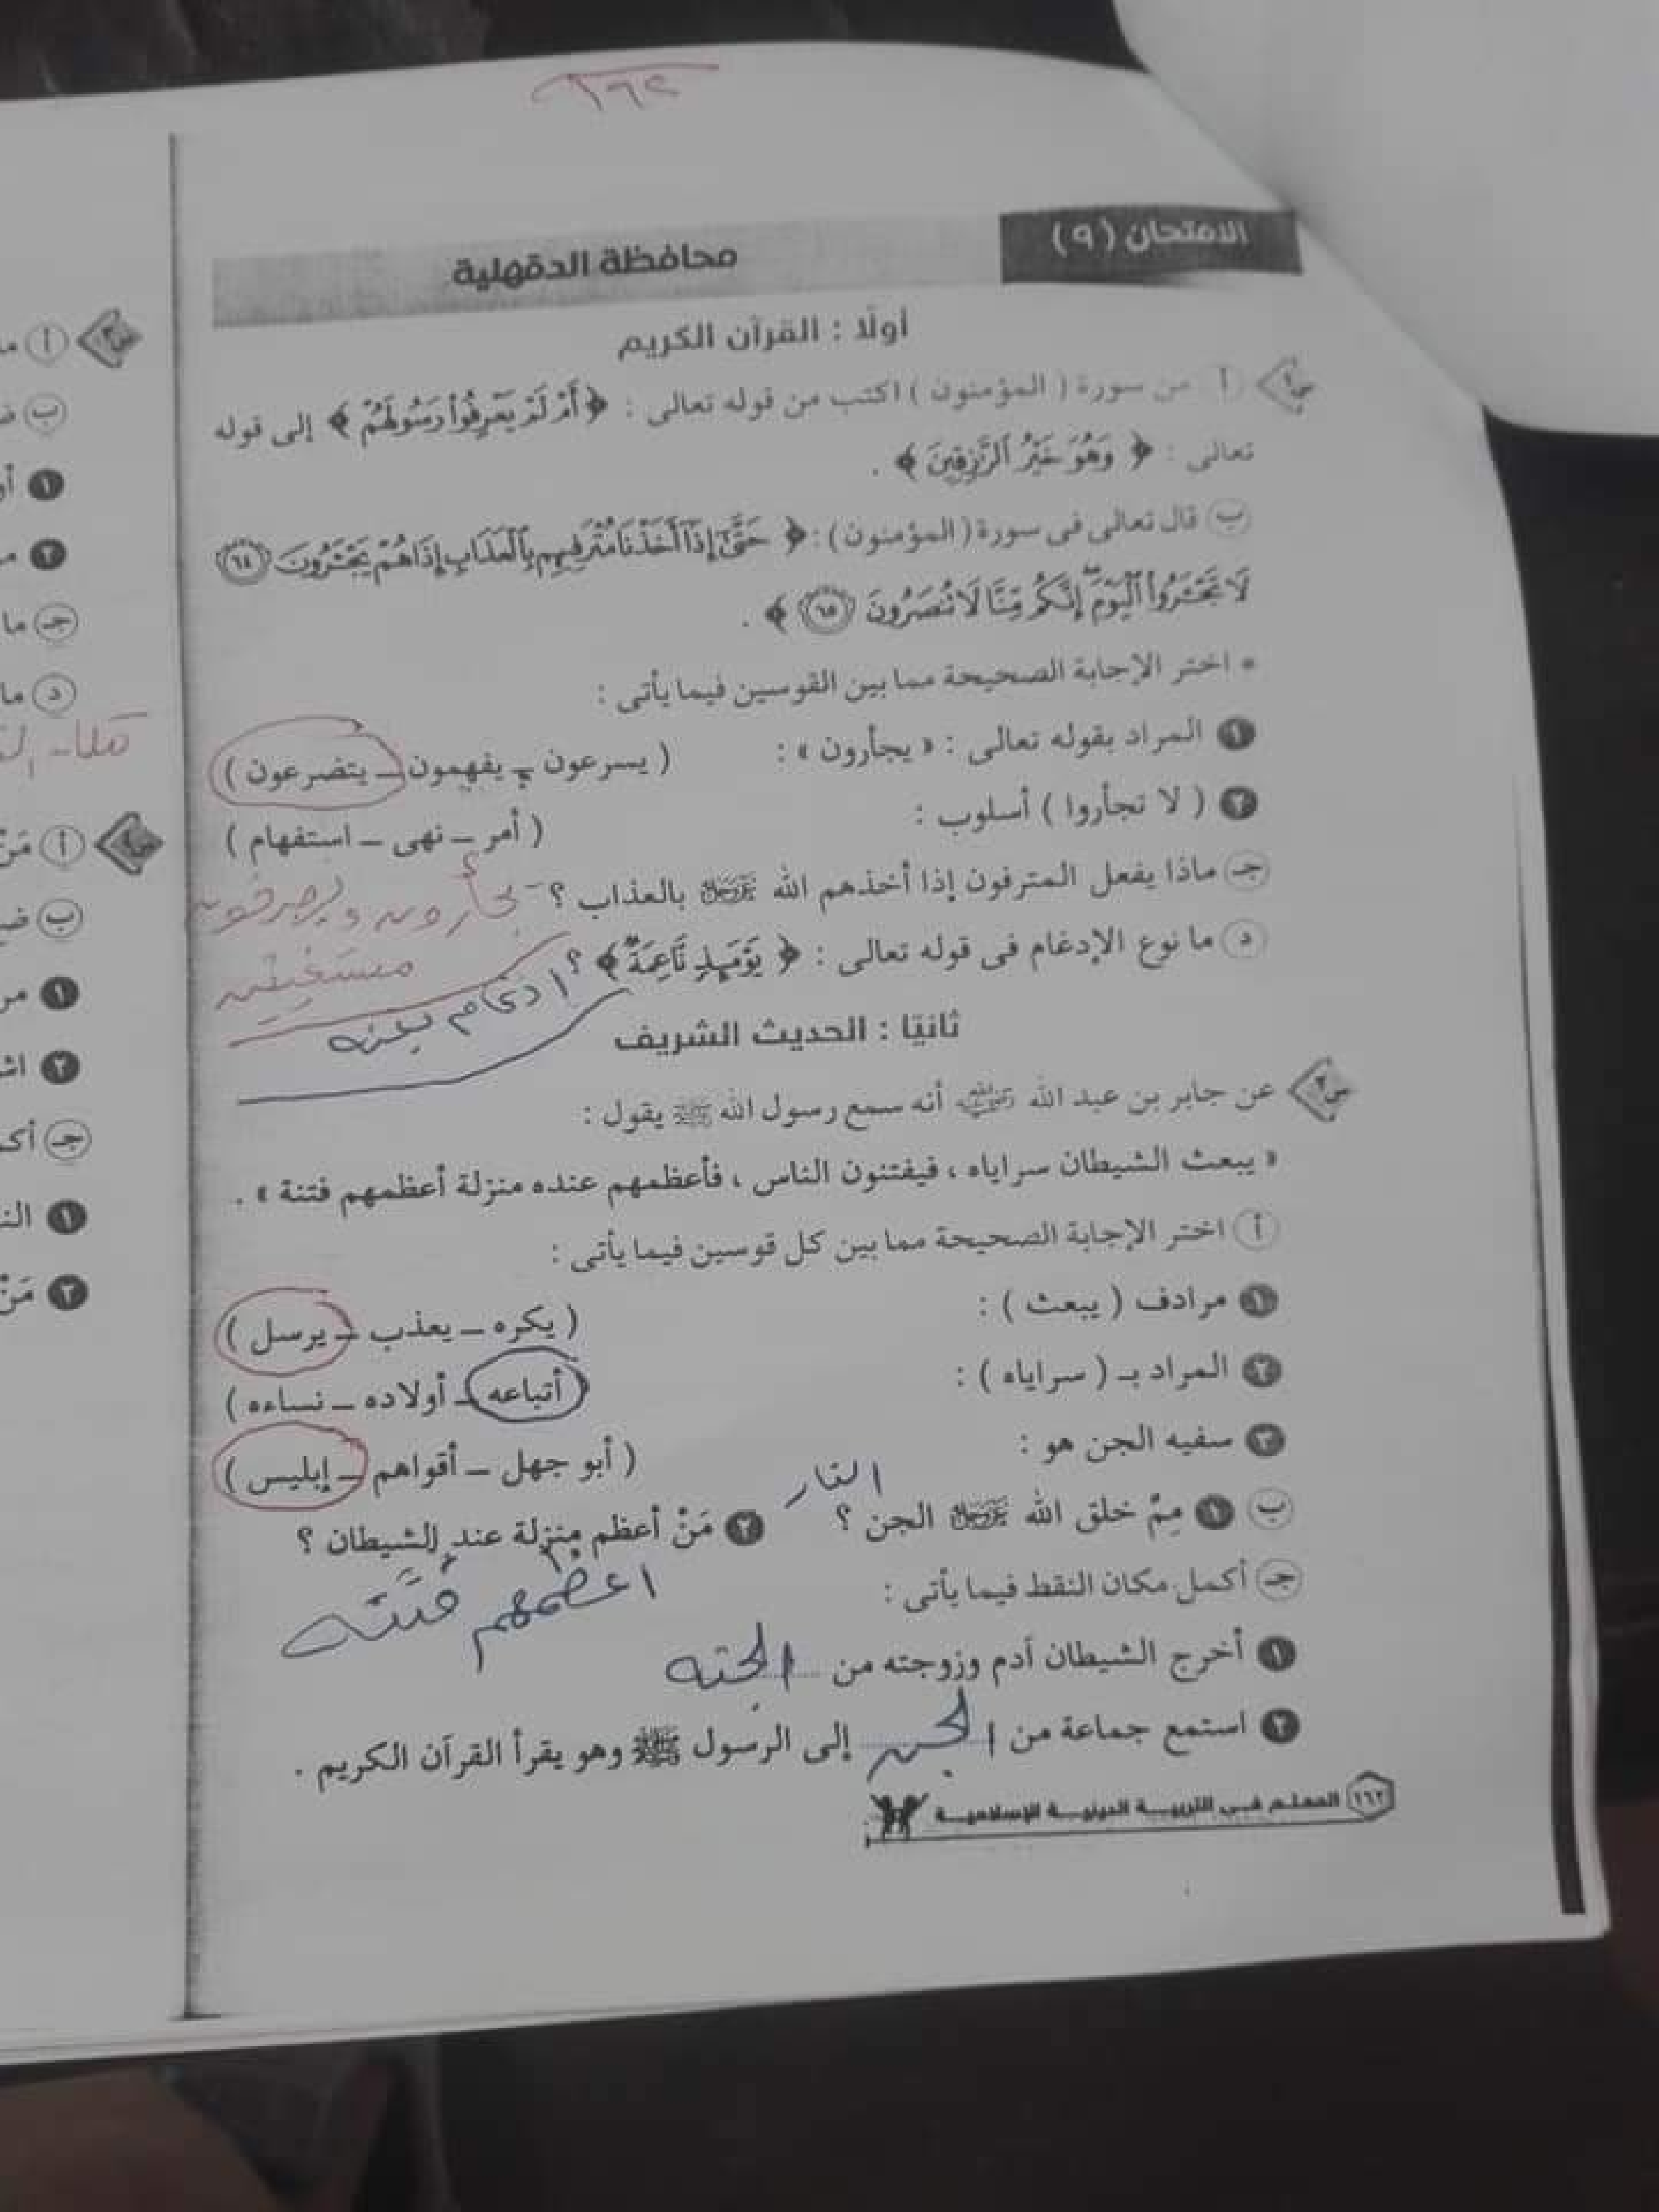 ١٦٢
الامتحان (٩)
محافظة الدقهلية
أولًا : القرآن الكريم
س١ أ من سورة ( المؤمنون ) اكتب من قوله تعالى : ﴿ أَمْ لَمْ يَعْرِفُوا رَسُولَهُمْ ﴾ إلى قوله
تعالى : ﴿ وَهُوَ خَيْرُ الرَّازِقِينَ ﴾ .
ب قال تعالى فى سورة ( المؤمنون ) : ﴿ حَتَّىٰ إِذَا أَخَذْنَا مُتْرَفِيهِم بِالْعَذَابِ إِذَا هُمْ يَجْـَٔرُونَ ٦٤
لَا تَجْـَٔرُوا الْيَوْمَ إِنَّكُم مِّنَّا لَا تُنصَرُونَ ٦٥ ﴾ .
* اختر الإجابة الصحيحة مما بين القوسين فيما يأتى :
١ المراد بقوله تعالى : « يجأرون » : ( يسرعون – يفهمون – يتضرعون )
٢ ( لا تجأروا ) أسلوب : ( أمر – نهى – استفهام )
جـ ماذا يفعل المترفون إذا أخذهم الله عز وجل بالعذاب ؟ يجأرون ويصرخون
مستغيثين
د ما نوع الإدغام فى قوله تعالى : ﴿ يَوْمَئِذٍ نَّاعِمَةٌ ﴾ ؟ ادغام بغنه
ثانيًا : الحديث الشريف
س٢ عن جابر بن عبد الله رضي الله عنه أنه سمع رسول الله ﷺ يقول :
« يبعث الشيطان سراياه ، فيفتنون الناس ، فأعظمهم عنده منزلة أعظمهم فتنة » .
أ اختر الإجابة الصحيحة مما بين كل قوسين فيما يأتى :
١ مرادف ( يبعث ) : ( يكره – يعذب – يرسل )
٢ المراد بـ ( سراياه ) : ( أتباعه – أولاده – نساءه )
٣ سفيه الجن هو : ( أبو جهل – أقواهم – إبليس )
النار
ب ١ مِمَّ خلق الله عز وجل الجن ؟ ٢ مَنْ أعظم منزلة عند الشيطان ؟
اعظمهم فتنه
جـ أكمل مكان النقط فيما يأتى :
١ أخرج الشيطان آدم وزوجته من الجنه
٢ استمع جماعة من الجن إلى الرسول ﷺ وهو يقرأ القرآن الكريم .
١٦٢ المعلم فى التربية الدينية الإسلامية
س٣ أ
ب
١
٢
جـ ما
د ما
س٤ أ مَنْ
ب
١
٢
جـ
١
٢ مَنْ